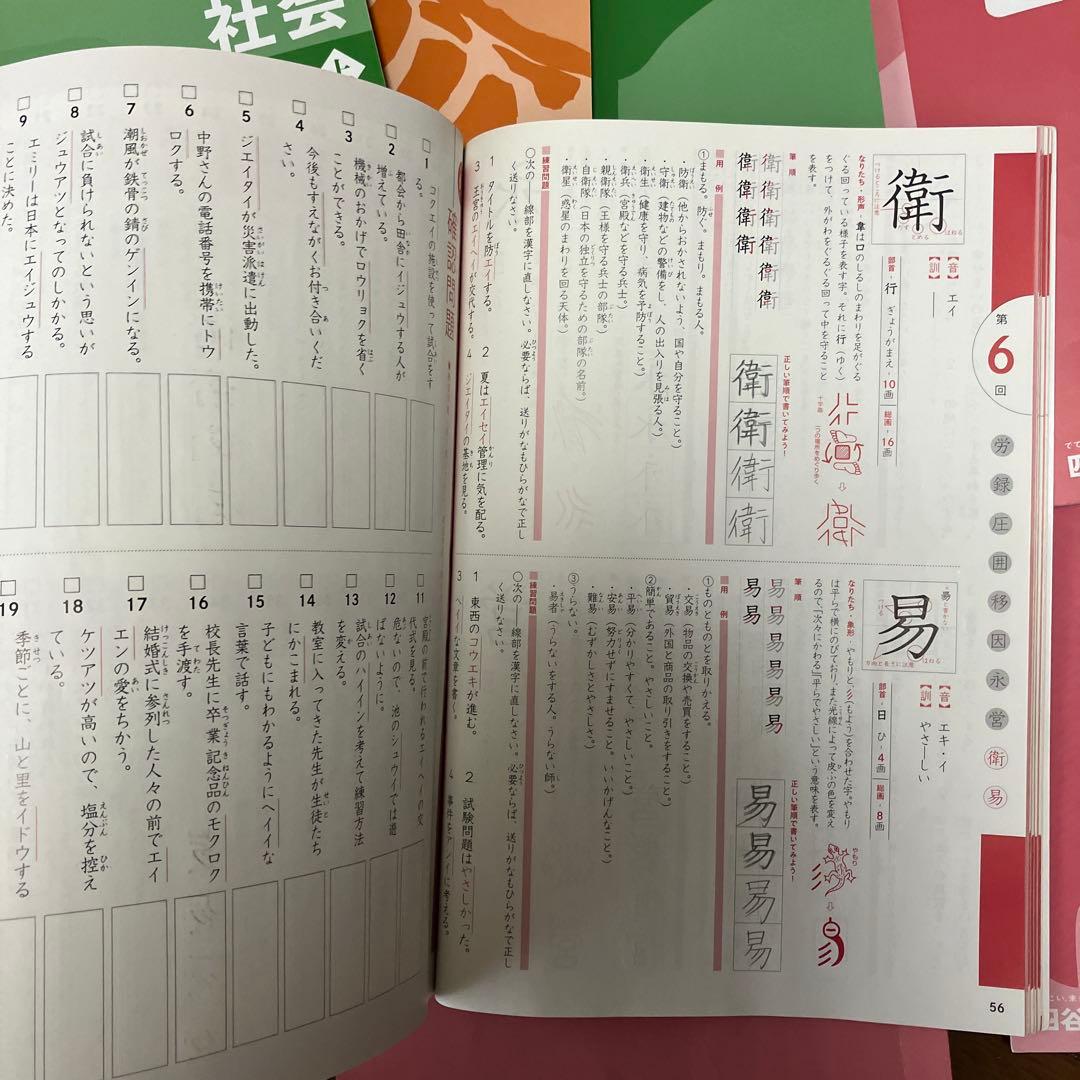 社会
第
6
回
労
録
圧
囲
移
因
永
営
衛
易
衛
はねる
とめる
【音】エイ
【訓】―
部首・行 ぎょうがまえ・10画 総画・16画
なりたち・形声・韋は口のしるしのまわりを足がぐる
ぐる回っている様子を表す字。それに行(ゆく)
をつけて、外がわをぐるぐる回って中を守ること
を表す。
十字路
一つの場所をめぐり歩く
筆順
衛衛衛衛衛衛
衛衛衛衛
正しい筆順で書いてみよう!
衛衛衛衛
用例
①まもる。防ぐ。まもり。まもる人。
・防衛(他からおかされないよう、国や自分を守ること。)
・守衛(建物などの警備をし、人の出入りを見張る人。)
・衛生(健康を守り、病気を予防すること。)
・衛兵(宮殿などを守る兵士。)
・親衛隊(王様を守る兵士の部隊。)
・自衛隊(日本の独立を守るための部隊の名前。)
・衛星(惑星のまわりを回る天体。)
練習問題
○次の──線部を漢字に直しなさい。必要ならば、送りがなもひらがなで正し
く送りなさい。
1 タイトルを防エイする。
2 夏はエイセイ管理に気を配る。
3 王宮のエイヘイが交代する。
4 ジエイタイの基地を見る。
易
はねる
方向と長さに注意
【音】エキ・イ
【訓】やさしい
部首・日 ひ・4画 総画・8画
なりたち・象形・やもりと、彡(もよう)を合わせた字。やもり
は平らで横にのびており、また光線によって皮ふの色を変え
るので、「次々にかわる」「平らでやさしい」という意味を表す。
やもり
筆順
易易易易易易
易易
正しい筆順で書いてみよう!
易易易易
用例
①ものとものとを取りかえる。
・交易(物品の交換や売買をすること。)
・貿易(外国と商品の取り引きをすること。)
②簡単であること。やさしいこと。
・平易(分かりやすくて、やさしいこと。)
・安易(努力せずにすませること。いいかげんなこと。)
・難易(むずかしさとやさしさ。)
③うらない。
・易者(うらないをする人。うらない師。)
練習問題
○次の──線部を漢字に直しなさい。必要ならば、送りがなもひらがなで正し
く送りなさい。
1 東西のコウエキが進む。
2 試験問題はやさしかった。
3 ヘイイな文章を書く。
4 事件をアンイに考える。
56
確認問題
□1 コクエイの施設を使って試合をす
る。
□2 都会から田舎にイジュウする人が
増えている。
□3 機械のおかげでロウリョクを省く
ことができる。
□4 今後もすえながくお付き合いくだ
さい。
□5 ジエイタイが災害派遣に出動した。
□6 中野さんの電話番号を携帯にトウ
ロクする。
□7 潮風が鉄骨の錆のゲンインになる。
□8 試合に負けられないという思いが
ジュウアツとなってのしかかる。
□9 エミリーは日本にエイジュウする
ことに決めた。
□11 宮殿の前で行われるエイヘイの交
代式を見る。
□12 危ないので、池のシュウイでは遊
ばないように。
□13 試合のハイインを考えて練習方法
を変える。
□14 教室に入ってきた先生が生徒たち
にかこまれる。
□15 子どもにもわかるようにヘイイな
言葉で話す。
□16 校長先生に卒業記念品のモクロク
を手渡す。
□17 結婚式に参列した人々の前でエイ
エンの愛をちかう。
□18 ケツアツが高いので、塩分を控え
ている。
□19 季節ごとに、山と里をイドウする